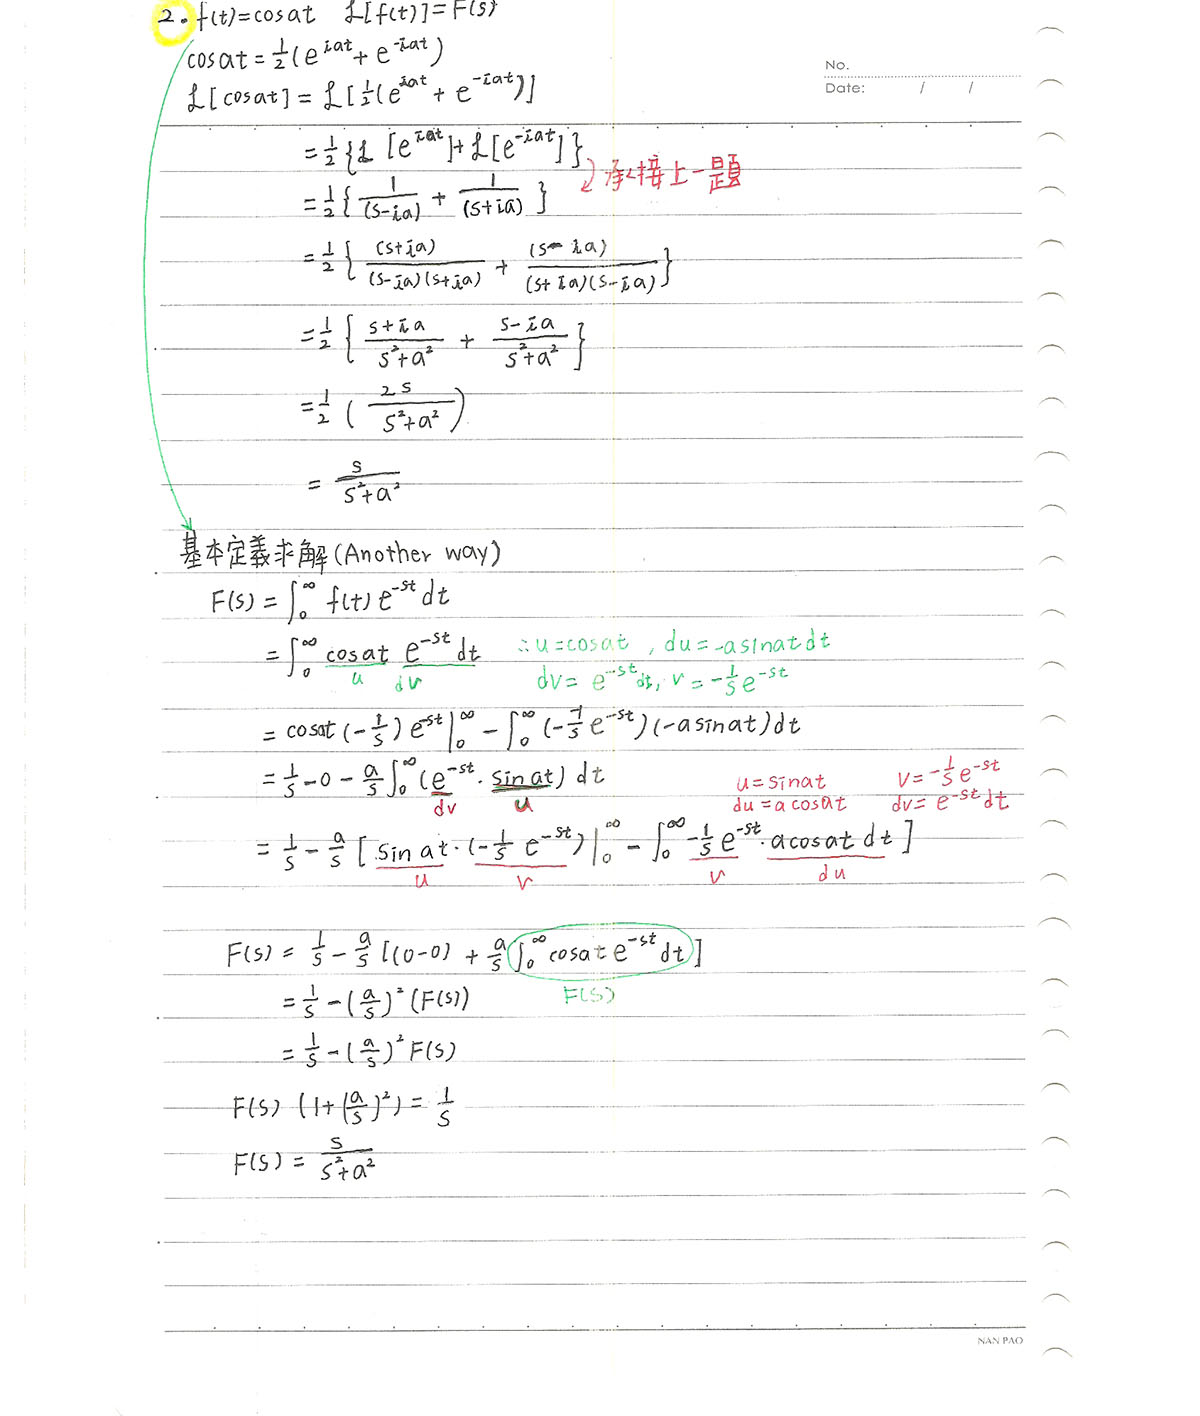 2. f(t)=cosat ℒ[f(t)]=F(s)
cosat=½(e^{iat}+e^{-iat})
No.
Date: / /
ℒ[cosat]=ℒ[½(e^{iat}+e^{-iat})]
=½{ℒ[e^{iat}]+ℒ[e^{-iat}]}
承接上一題
=½{1/(s-ia) + 1/(s+ia)}
=½{(s+ia)/((s-ia)(s+ia)) + (s-ia)/((s+ia)(s-ia))}
=½{(s+ia)/(s²+a²) + (s-ia)/(s²+a²)}
=½(2s/(s²+a²))
=s/(s²+a²)
基本定義求解(Another way)
F(s)=∫₀^∞ f(t)e^{-st}dt
=∫₀^∞ cosat e^{-st}dt ∴u=cosat, du=-asinatdt
u dv dv=e^{-st}dt, v=-1/s e^{-st}
=cosat(-1/s)e^{-st}|₀^∞ - ∫₀^∞(-1/s e^{-st})(-asinat)dt
=1/s-0-a/s∫₀^∞(e^{-st}·sinat)dt u=sinat v=-1/s e^{-st}
dv u du=acosat dv=e^{-st}dt
=1/s-a/s[sinat·(-1/s e^{-st})|₀^∞ - ∫₀^∞ -1/s e^{-st}·acosatdt]
u v v du
F(s)=1/s-a/s[(0-0)+a/s∫₀^∞cosate^{-st}dt]
=1/s-(a/s)²(F(s)) F(s)
=1/s-(a/s)²F(s)
F(s)(1+(a/s)²)=1/s
F(s)=s/(s²+a²)
NAN PAO